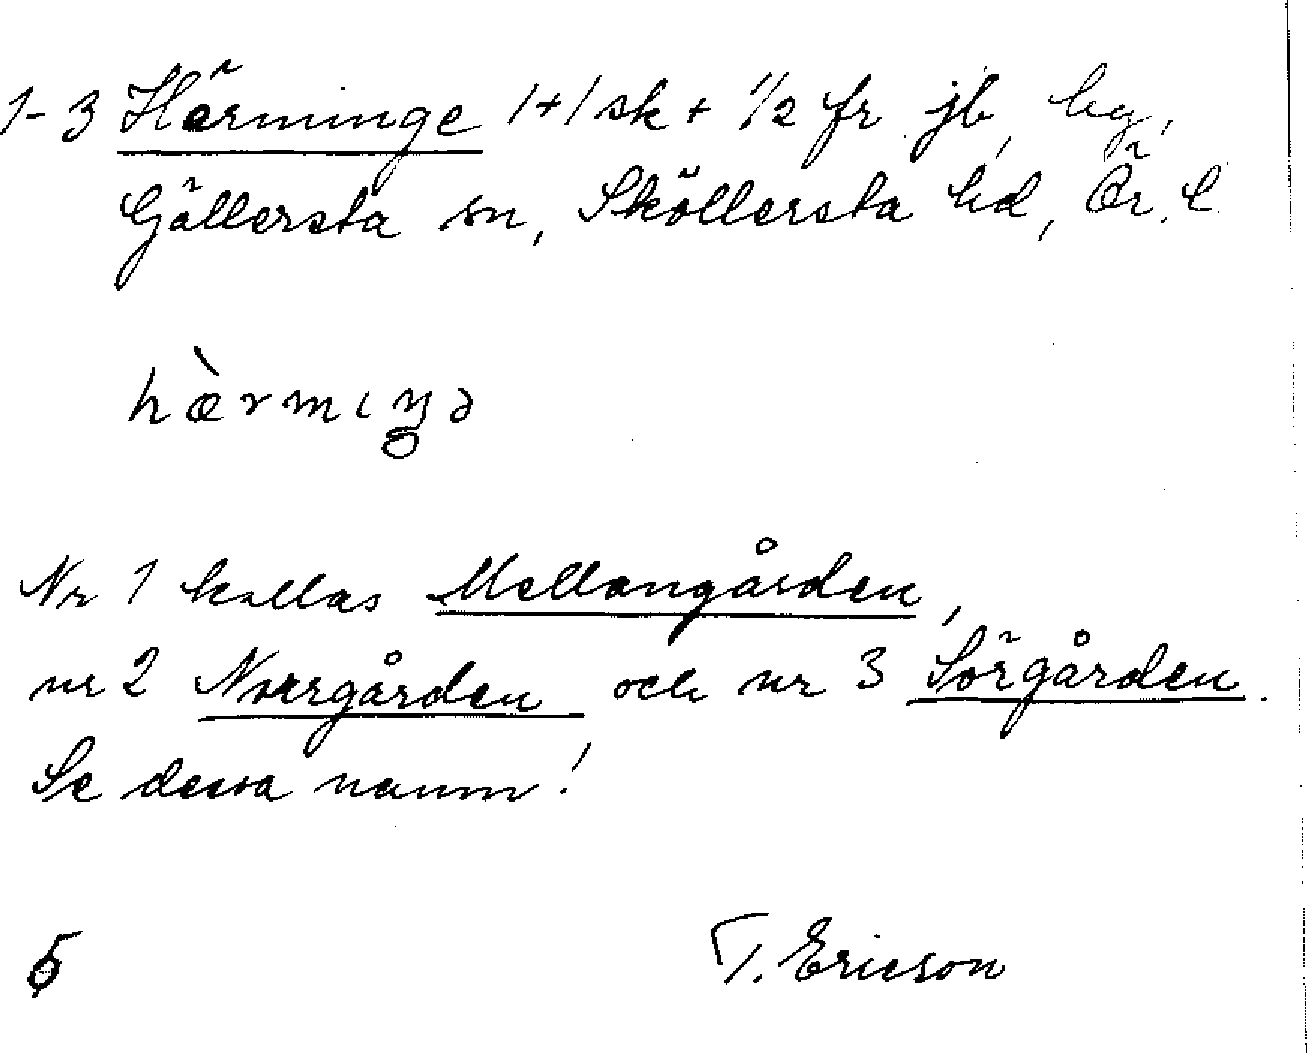 1-3 Härminge 1+1 sk + 1/2 fr jb, by,
Gällersta sn, Sköllersta hd, Ör. l
hæ̀rmıŋə
Nr 1 kallas Mellangården,
nr 2 Norrgården och nr 3 Sörgården.
Se dessa namn!
T. Ericson